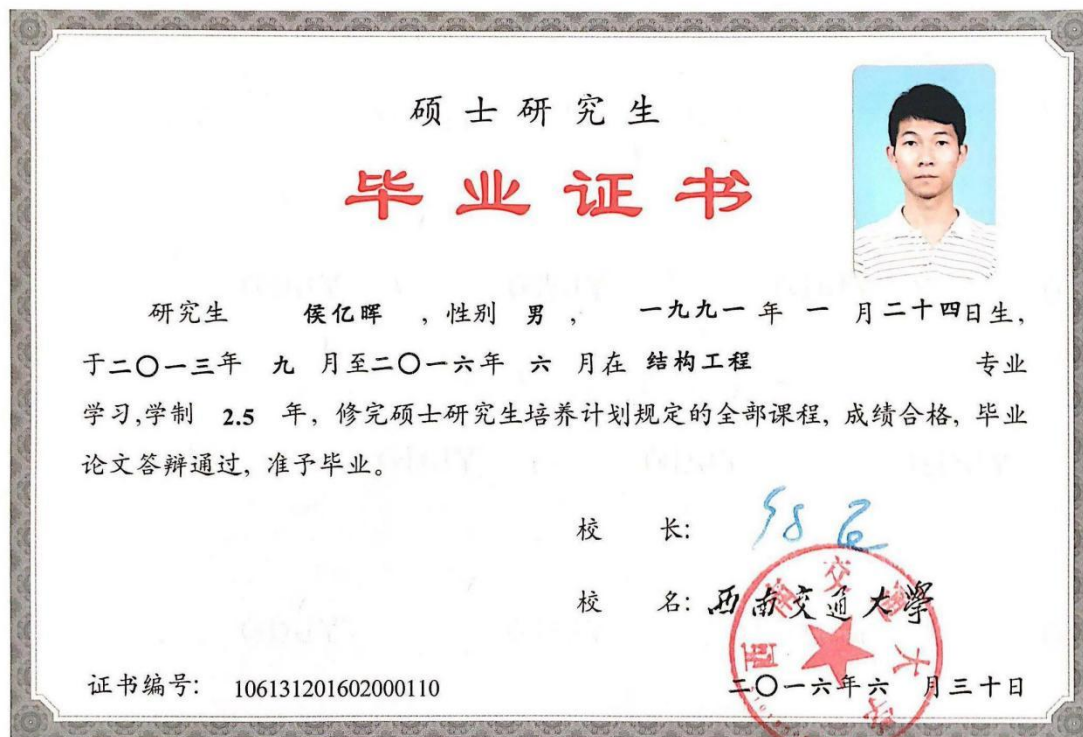 硕士研究生
毕业证书
研究生 侯亿晖 ,性别 男 , 一九九一 年 一 月二十四日生,
于二〇一三年 九 月至二〇一六年 六 月在 结构工程 专业
学习,学制 2.5 年, 修完硕士研究生培养计划规定的全部课程, 成绩合格, 毕业
论文答辩通过, 准予毕业。
校 长:
校 名: 西南交通大學
西南交通大学
证书编号: 106131201602000110
二〇一六年六 月三十日